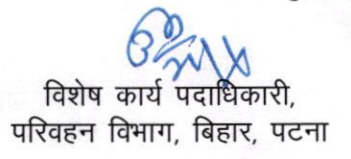 विशेष कार्य पदाधिकारी,
परिवहन विभाग, बिहार, पटना